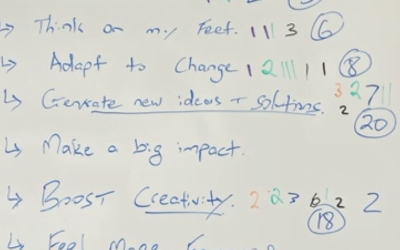 ↳ Think on my Feet. 1 1 1 3 6
↳ Adapt to Change 1 2 1 1 1 1 1 8
↳ Generate new ideas + solutions. 3 2 7 1 1
2 20
↳ Make a big impact.
↳ Boost Creativity. 2 2 3 6 1 2 2
18
↳ Feel More